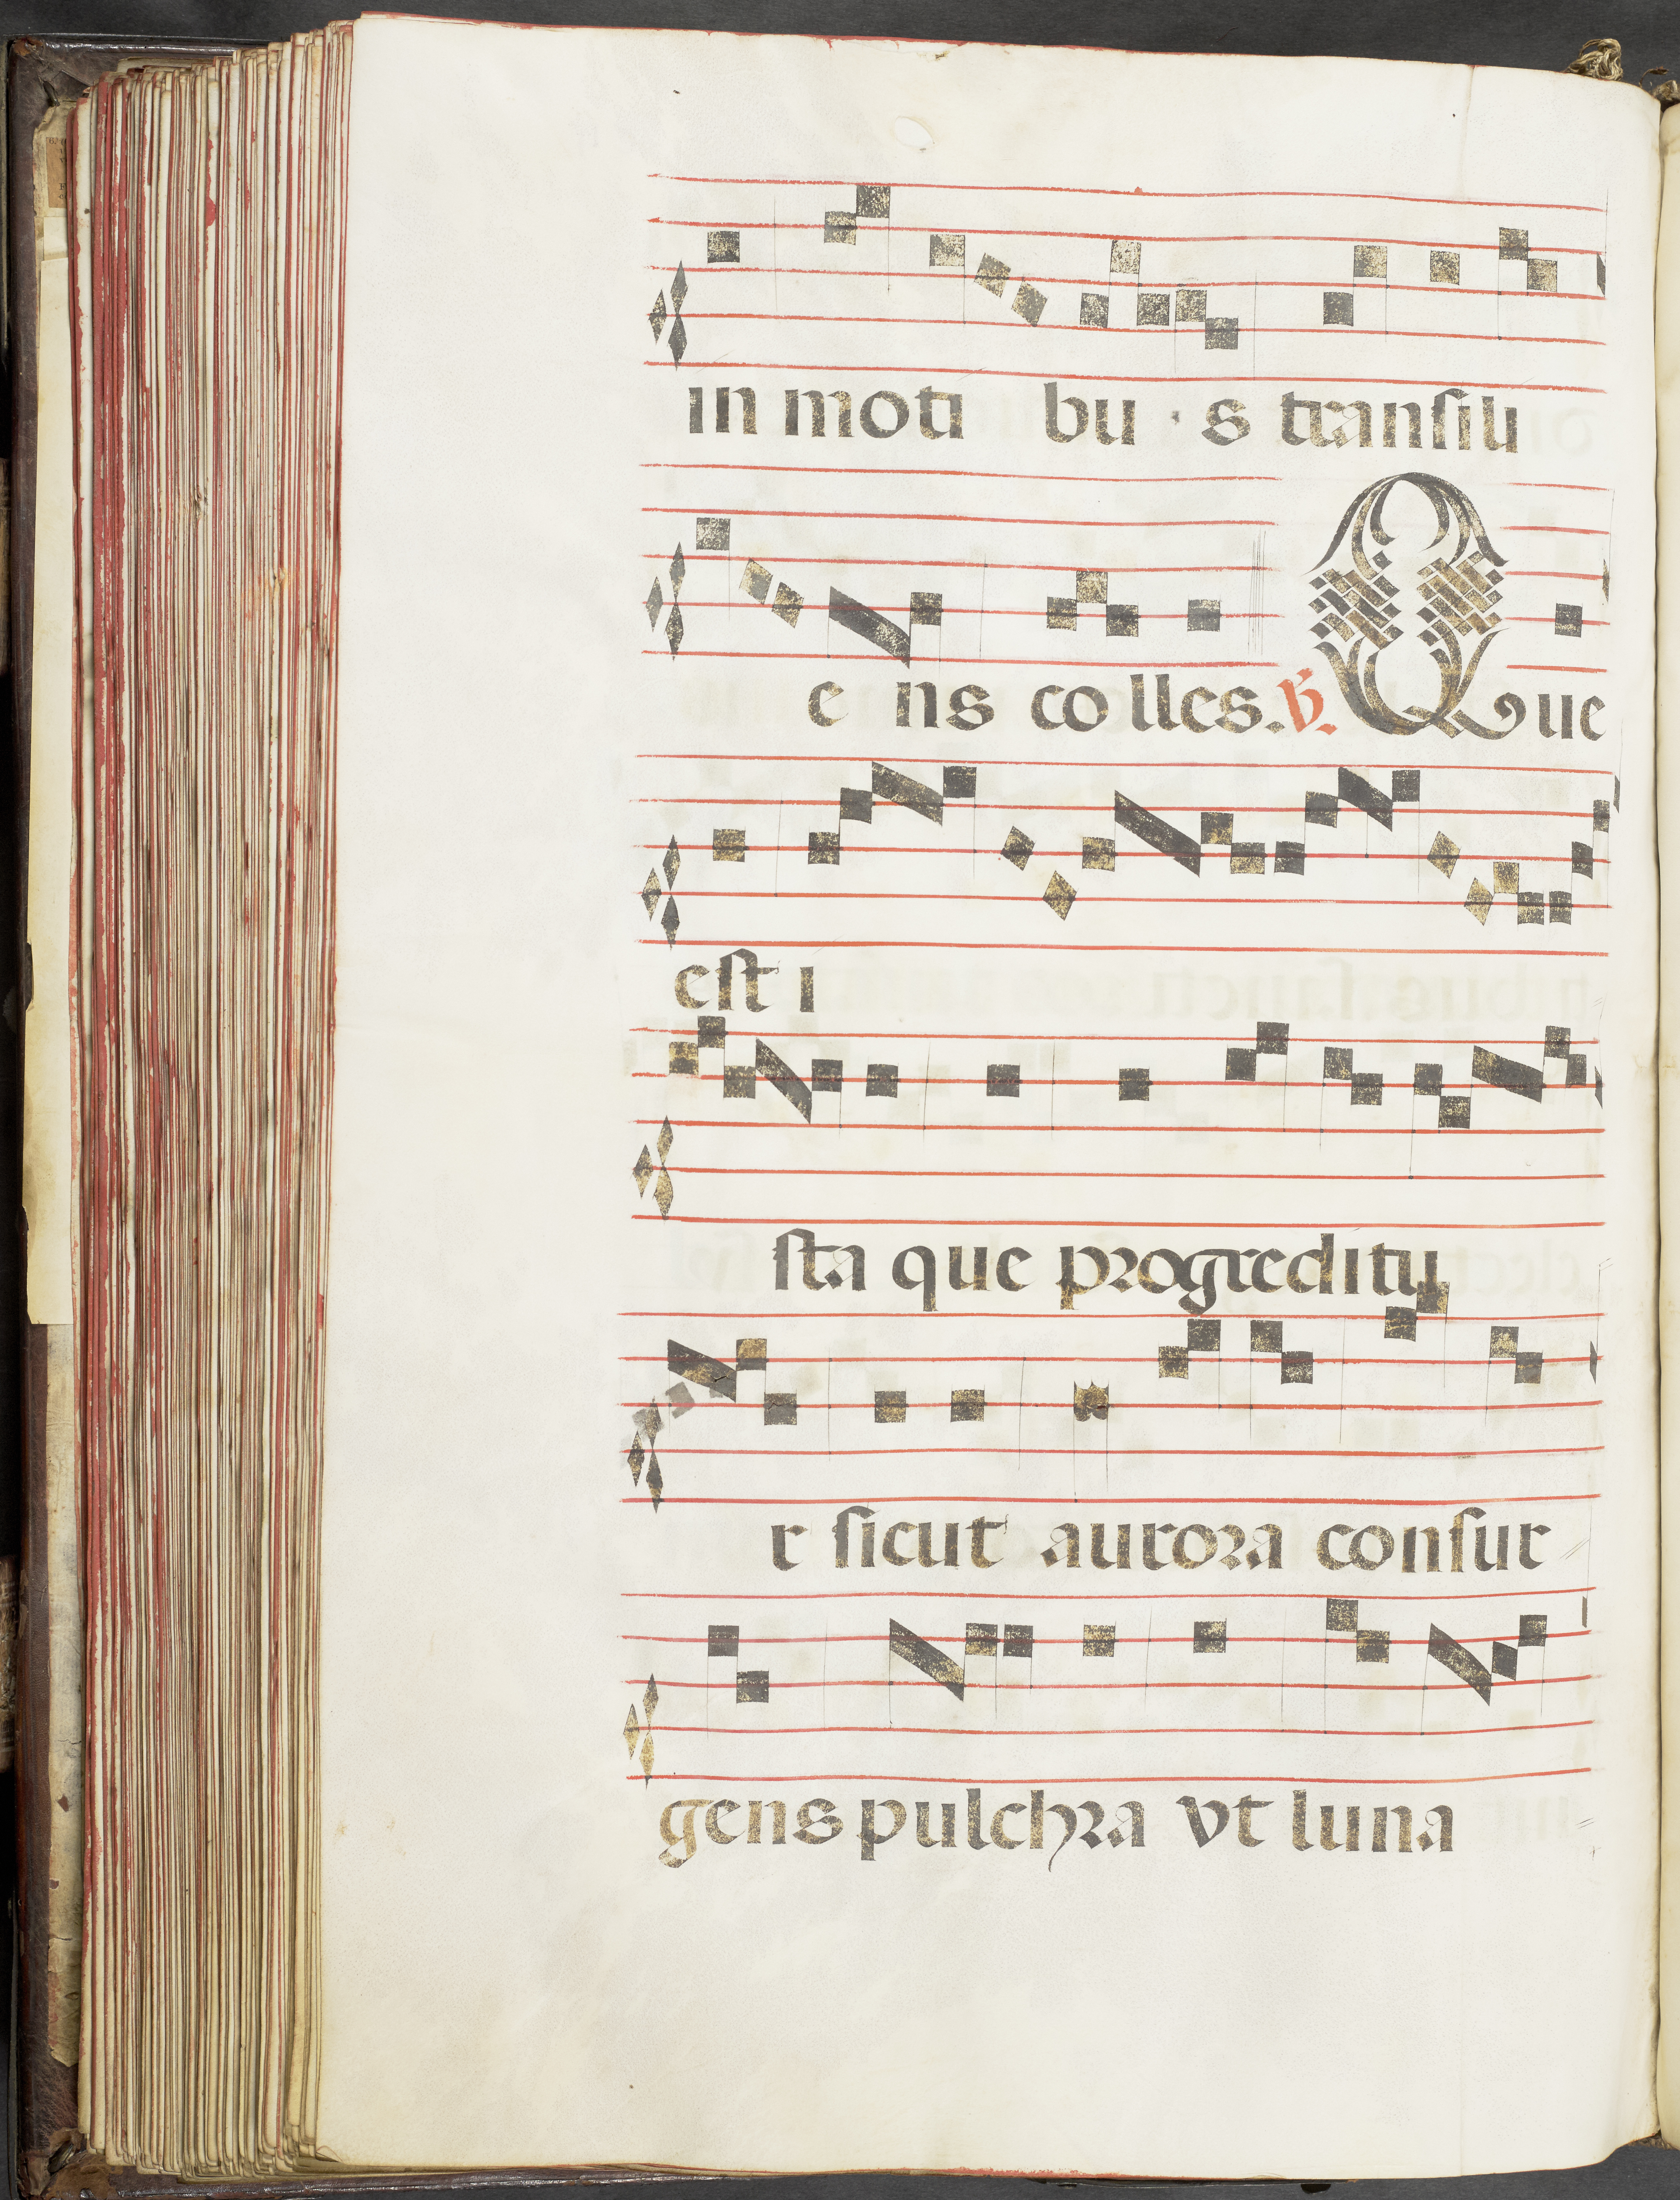 in moti bu s transili
e ns colles. ℣. Que
est i
sta que progreditu
r sicut aurora consur
gens pulchra vt luna